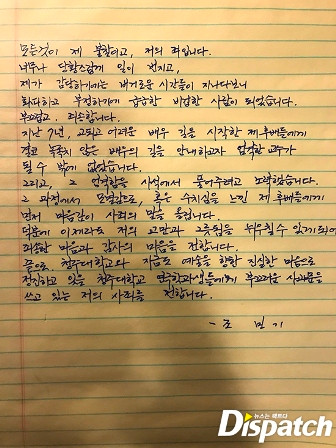 모든것이 제 불찰이고, 저의 죄입니다.
너무나 당황스럽게 일이 번지고,
제가 감당하기에는 버거운 시간들이 지나다보니
회피하고 부정하기에 급급한 비겁한 사람이 되었습니다.
부끄럽고, 죄송합니다.
지난 7년, 고되고 어려운 배우 길을 시작한 제 후배들에게
결코 녹록지 않은 배우의 길을 안내하고자 엄격한 교수가
될 수 밖에 없었습니다.
그리고, 그 엄격함을 사석에서 풀어주려고 노력했습니다.
그 과정에서 모멸감으로, 혹은 수치심을 느낀 제 후배들에게
먼저 마음깊이 사죄의 말을 올립니다.
덕분에 이제라도 저의 교만과 그릇됨을 뉘우칠 수 있게되어
죄송한 마음과 감사의 마음을 전합니다.
끝으로, 청주대학교와 지금도 예술을 향한 진실한 마음으로
정진하고 있을 청주대학교 연극학과생들에게 부끄러운 사과문을
쓰고 있는 저의 사죄를 전합니다.
- 조 민 기
뉴스는 팩트다
Dispatch